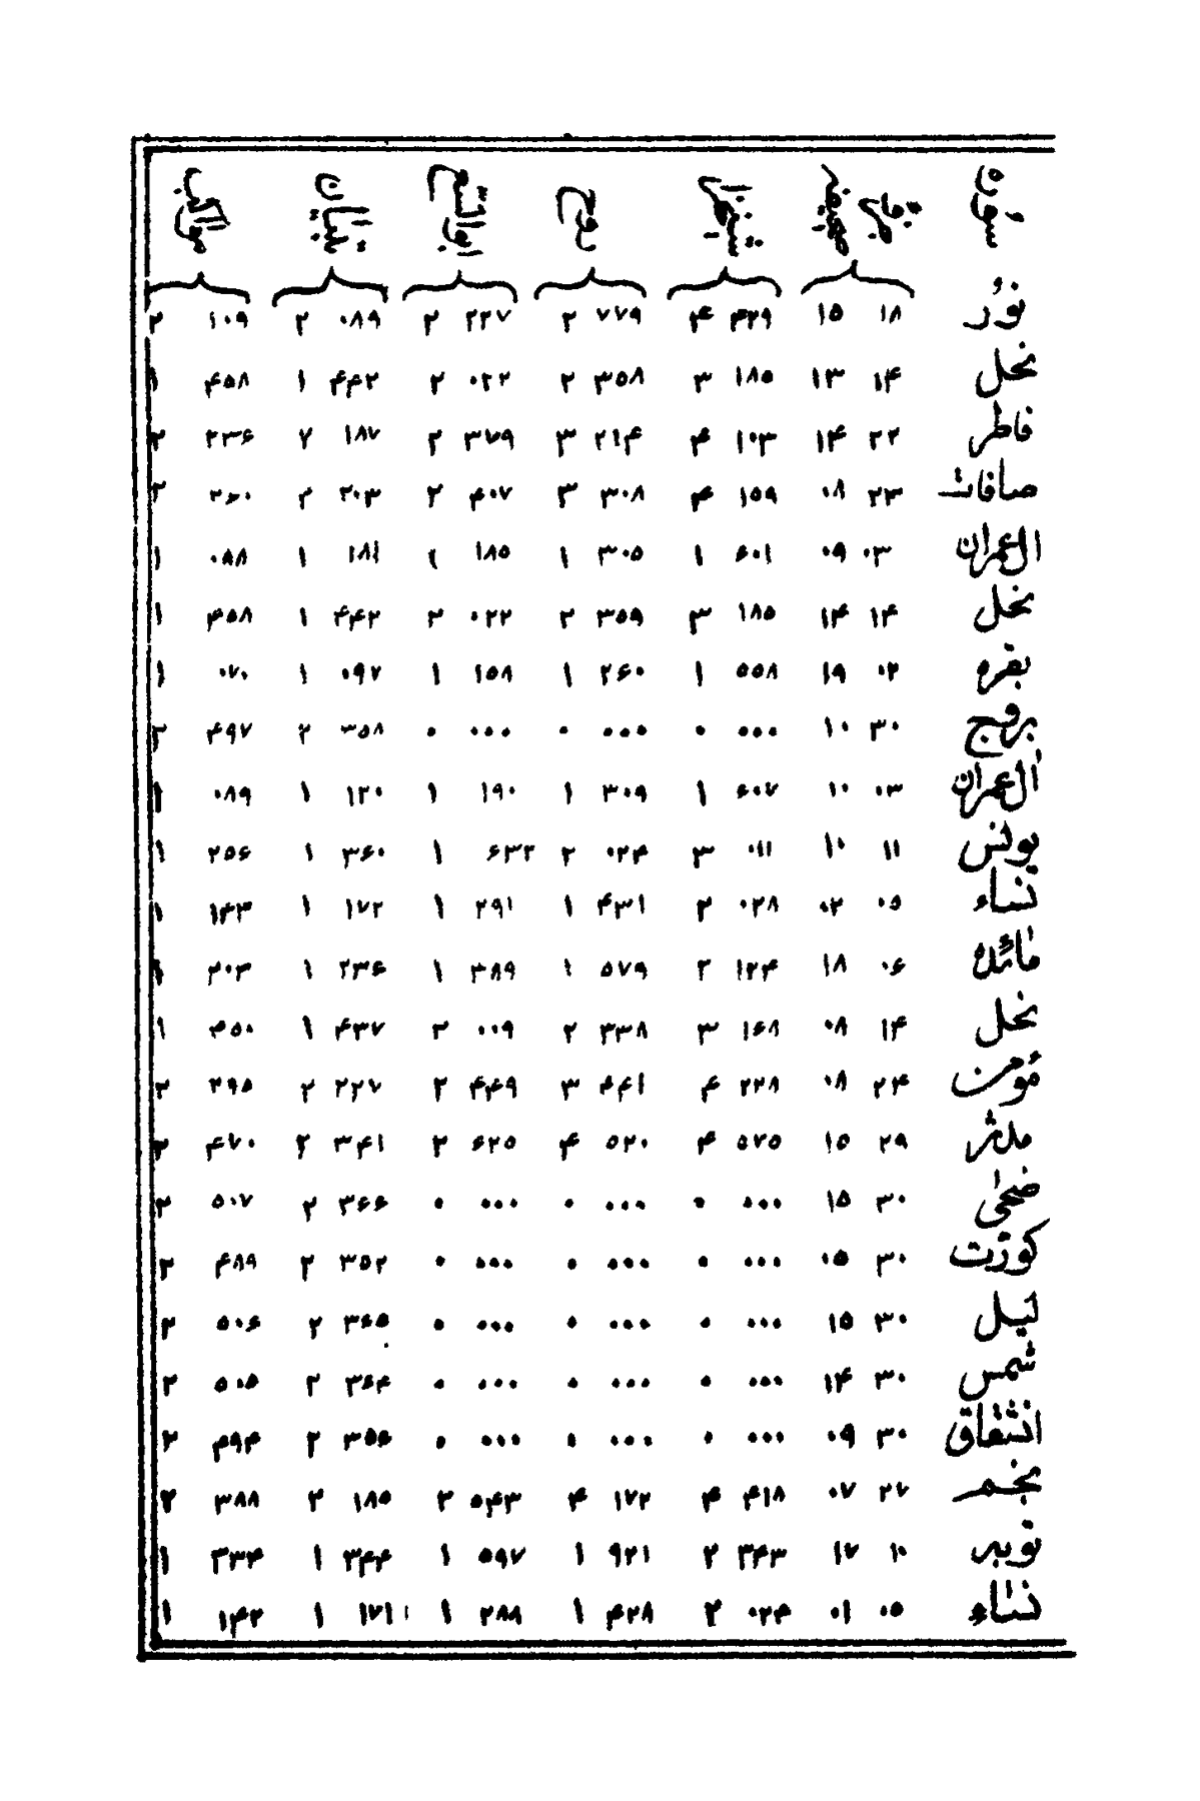 سوره صفحه روح تبیان
نور ۱۸ ۱۵ ۴۲۹ ۴ ۷۷۹ ۲ ۲۲۷ ۲ ۰۸۹ ۲ ۱۰۹ ۲
نحل ۱۴ ۱۳ ۱۸۵ ۳ ۳۵۸ ۲ ۰۲۲ ۲ ۴۴۲ ۱ ۴۵۸ ۱
فاطر ۲۲ ۱۴ ۱۰۳ ۴ ۲۱۴ ۳ ۳۷۹ ۲ ۱۸۷ ۲ ۲۳۶ ۲
صافات ۲۳ ۰۸ ۱۵۹ ۴ ۳۰۸ ۳ ۴۰۷ ۲ ۲۰۳ ۲ ۲۶۰ ۲
ال عمران ۰۳ ۰۹ ۶۰۱ ۱ ۳۰۵ ۱ ۱۸۵ ۱ ۱۸۱ ۱ ۰۸۸ ۱
نحل ۱۴ ۱۴ ۱۸۵ ۳ ۳۵۹ ۲ ۰۲۲ ۲ ۴۴۲ ۱ ۴۵۸ ۱
بقره ۰۲ ۱۹ ۵۵۸ ۱ ۲۶۰ ۱ ۱۵۸ ۱ ۰۹۲ ۱ ۰۷۰ ۱
بروج ۳۰ ۱۰ ۰۰۰ ۰ ۰۰۰ ۰ ۰۰۰ ۰ ۳۵۸ ۲ ۴۹۷ ۲
ال عمران ۰۳ ۱۰ ۶۰۷ ۱ ۳۰۹ ۱ ۱۹۰ ۱ ۱۲۰ ۱ ۰۸۹ ۱
یونس ۱۱ ۱۰ ۰۱۱ ۳ ۰۲۴ ۲ ۶۳۲ ۱ ۳۶۰ ۱ ۲۵۶ ۱
نساء ۰۵ ۰۲ ۰۲۸ ۲ ۴۳۱ ۱ ۲۹۱ ۱ ۱۷۲ ۱ ۱۴۳ ۱
مائده ۰۶ ۱۸ ۱۲۴ ۲ ۵۷۹ ۱ ۳۸۹ ۱ ۲۳۶ ۱ ۲۰۳ ۱
نحل ۱۴ ۰۸ ۱۶۸ ۳ ۳۳۸ ۲ ۰۰۹ ۲ ۴۳۷ ۱ ۴۵۰ ۱
مؤمن ۲۴ ۰۸ ۲۲۸ ۴ ۴۴۱ ۳ ۴۴۹ ۲ ۲۲۷ ۲ ۲۹۵ ۲
مدثر ۲۹ ۱۵ ۵۷۵ ۴ ۵۲۰ ۴ ۶۲۵ ۲ ۳۴۱ ۲ ۴۷۰ ۲
ضحی ۳۰ ۱۵ ۰۰۰ ۰ ۰۰۰ ۰ ۰۰۰ ۰ ۳۶۶ ۲ ۵۰۷ ۲
کورت ۳۰ ۰۵ ۰۰۰ ۰ ۰۰۰ ۰ ۰۰۰ ۰ ۳۵۲ ۲ ۴۸۹ ۲
لیل ۳۰ ۱۵ ۰۰۰ ۰ ۰۰۰ ۰ ۰۰۰ ۰ ۳۶۵ ۲ ۵۰۶ ۲
شمس ۳۰ ۱۴ ۰۰۰ ۰ ۰۰۰ ۰ ۰۰۰ ۰ ۳۶۴ ۲ ۵۰۵ ۲
انشقاق ۳۰ ۰۹ ۰۰۰ ۰ ۰۰۰ ۰ ۰۰۰ ۰ ۳۵۶ ۲ ۴۹۴ ۲
نجم ۲۷ ۰۷ ۴۱۸ ۴ ۱۷۲ ۴ ۵۴۳ ۲ ۱۸۵ ۲ ۳۸۸ ۲
توبه ۱۰ ۱۷ ۳۴۳ ۲ ۹۲۱ ۱ ۵۹۷ ۱ ۳۴۴ ۱ ۲۳۴ ۱
نساء ۰۵ ۰۱ ۰۲۴ ۲ ۴۲۸ ۱ ۲۸۸ ۱ ۱۷۱ ۱ ۱۴۲ ۱